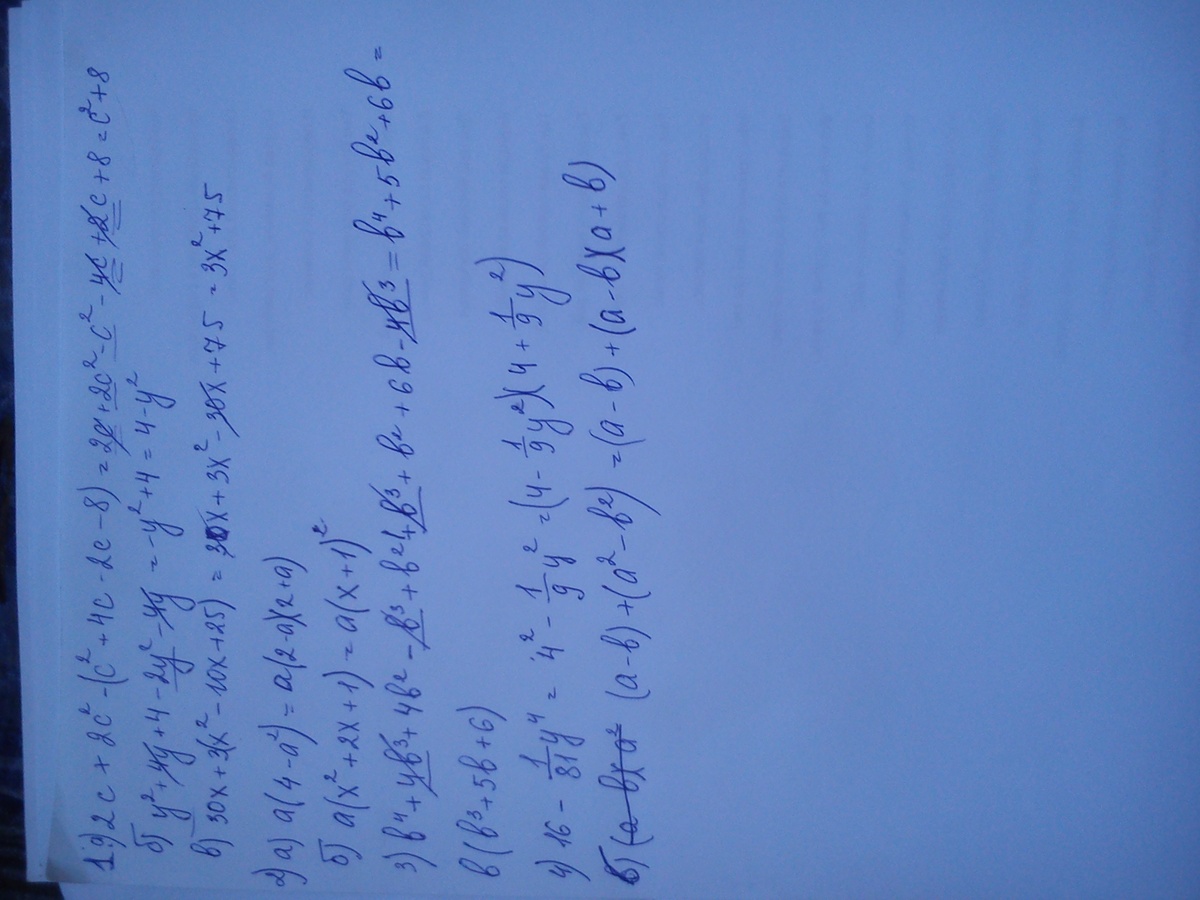 1.а) 2c + 2c² - (c² + 4c - 2c - 8) = 2c + 2c² - c² - 4c + 2c + 8 = c² + 8
б) y² + 4y + 4 - 2y² - 4y = -y² + 4 = 4 - y²
в) 30x + 3(x² - 10x + 25) = 30x + 3x² - 30x + 75 = 3x² + 75
2) а) a(4 - a²) = a(2-a)(2+a)
б) a(x² + 2x + 1) = a(x+1)²
3) b⁴ + 4b³ + 4b² - b³ + b² + b³ + b² + 6b - 4b³ = b⁴ + 5b² + 6b =
b(b³ + 5b + 6)
4) 16 - 1/81 y⁴ = 4² - 1/9 y² = (4 - 1/9 y²)(4 + 1/9 y²)
б) (a - b)(a² (a - b) + (a² - b²) = (a - b) + (a - b)(a + b)